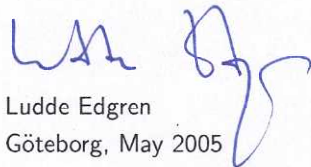 Ludde Edgren
Göteborg, May 2005